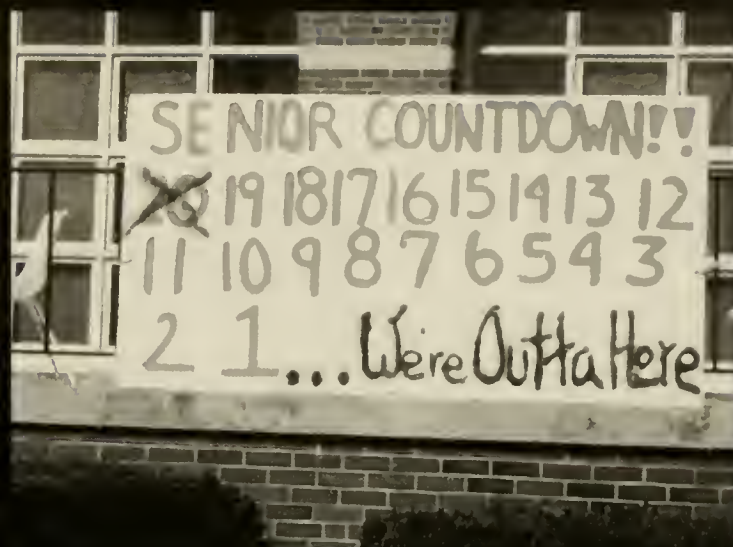 SENIOR COUNTDOWN!!
20 19 18 17 16 15 14 13 12
11 10 9 8 7 6 5 4 3
2 1... We're Outta Here